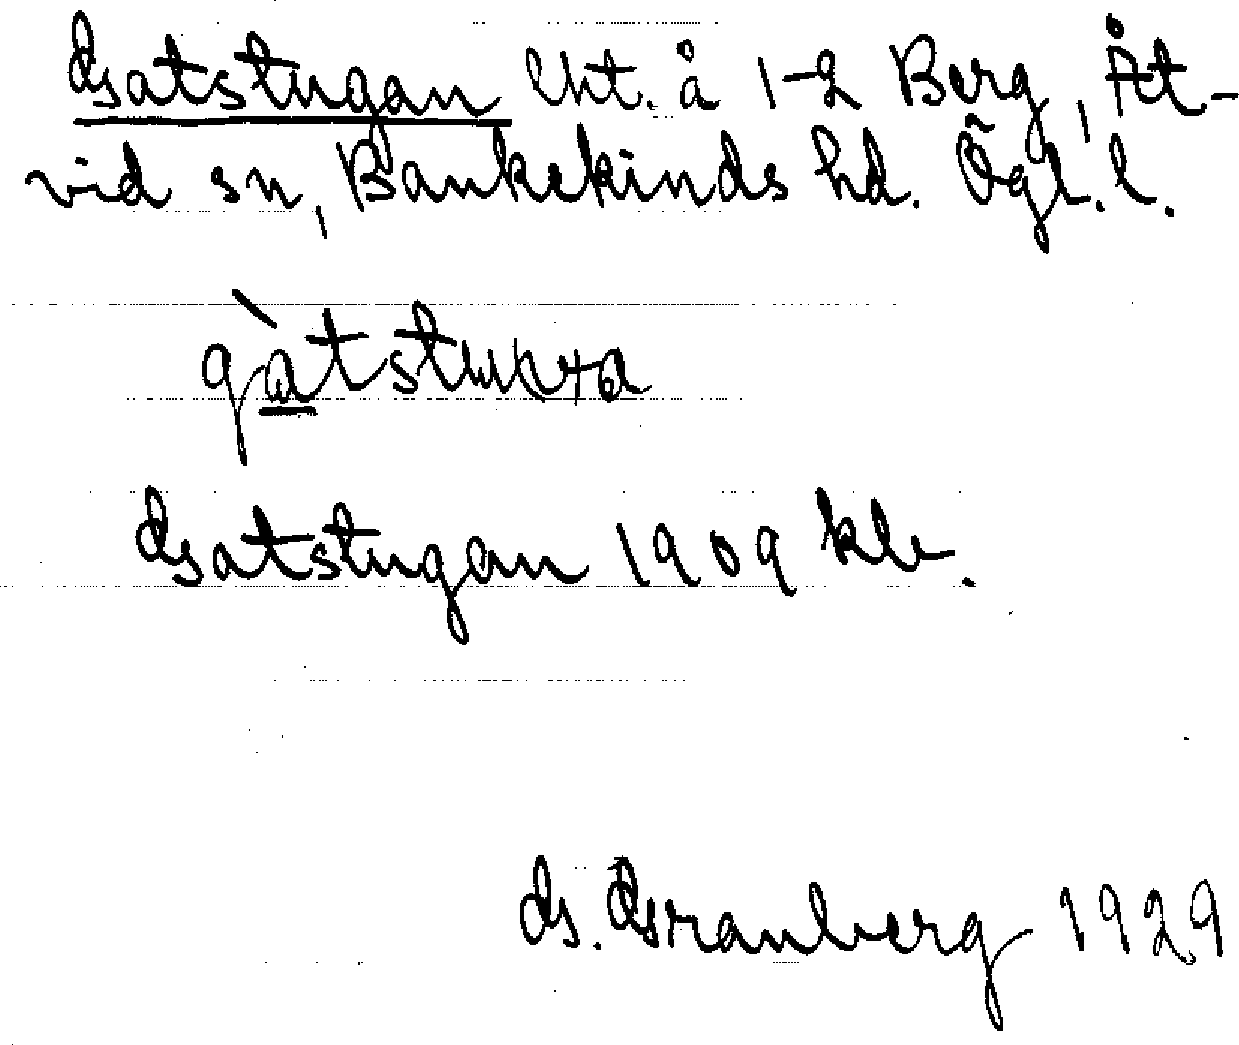 Gatstugan lht. å 1-2 Berg, Åt-
vid sn, Bankekinds hd. Ögl. l.
Gatstugan 1909 kle.
G. Granberg 1929